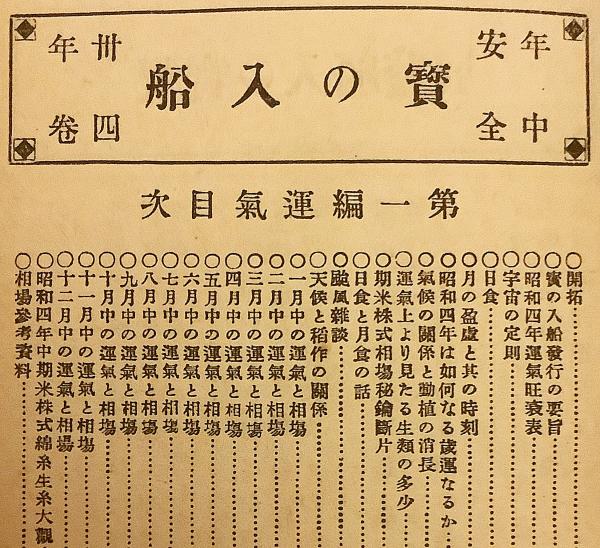 年中
安全
寶の入船
卅四
年卷
第一編運氣目次
○開拓
○寶の入船發行の要旨
○昭和四年運氣旺衰表
○宇宙の定則
○日食
○月の盈虚と其の時刻
○昭和四年は如何なる歳運なるか
○氣候の關係と動植の消長
○運氣上より見たる生類の多少
○期米株式相場秘鑰斷片
○日食と月食の話
○颱風雜談
○天候と稻作の關係
○一月中の運氣と相塲
○二月中の運氣と相塲
○三月中の運氣と相塲
○四月中の運氣と相塲
○五月中の運氣と相塲
○六月中の運氣と相塲
○七月中の運氣と相塲
○八月中の運氣と相塲
○九月中の運氣と相塲
○十月中の運氣と相塲
○十一月中の運氣と相塲
○十二月中の運氣と相塲
○昭和四年中期米株式綿糸生糸大觀
○相塲參考資料